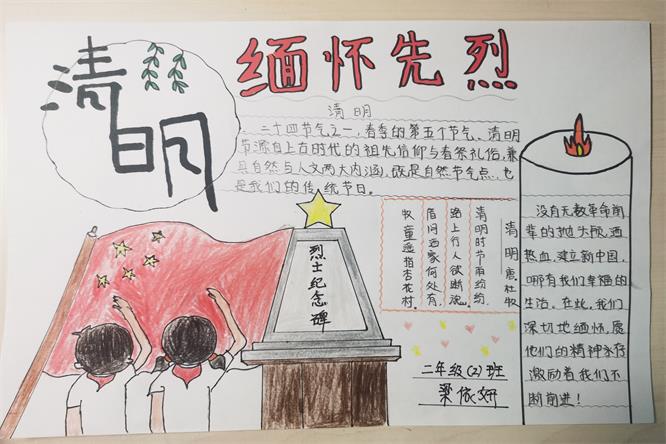 清明
缅怀先烈
清明
二十四节气之一，春季的第五个节气、清明
节源自上古时代的祖先信仰与春祭礼俗,兼
具自然与人文两大内涵,既是自然节气点，也
是我们的传统节日。
烈士纪念碑
清明 唐 杜牧
清明时节雨纷纷,
路上行人欲断魂。
借问酒家何处有,
牧童遥指杏花村。
没有无数革命前
辈的抛头颅,洒
热血,建立新中国,
哪有我们幸福的
生活。在此,我们
深切地缅怀,愿
他们的精神永存
激励着我们不
断前进！
二年级(2)班
梁依妍